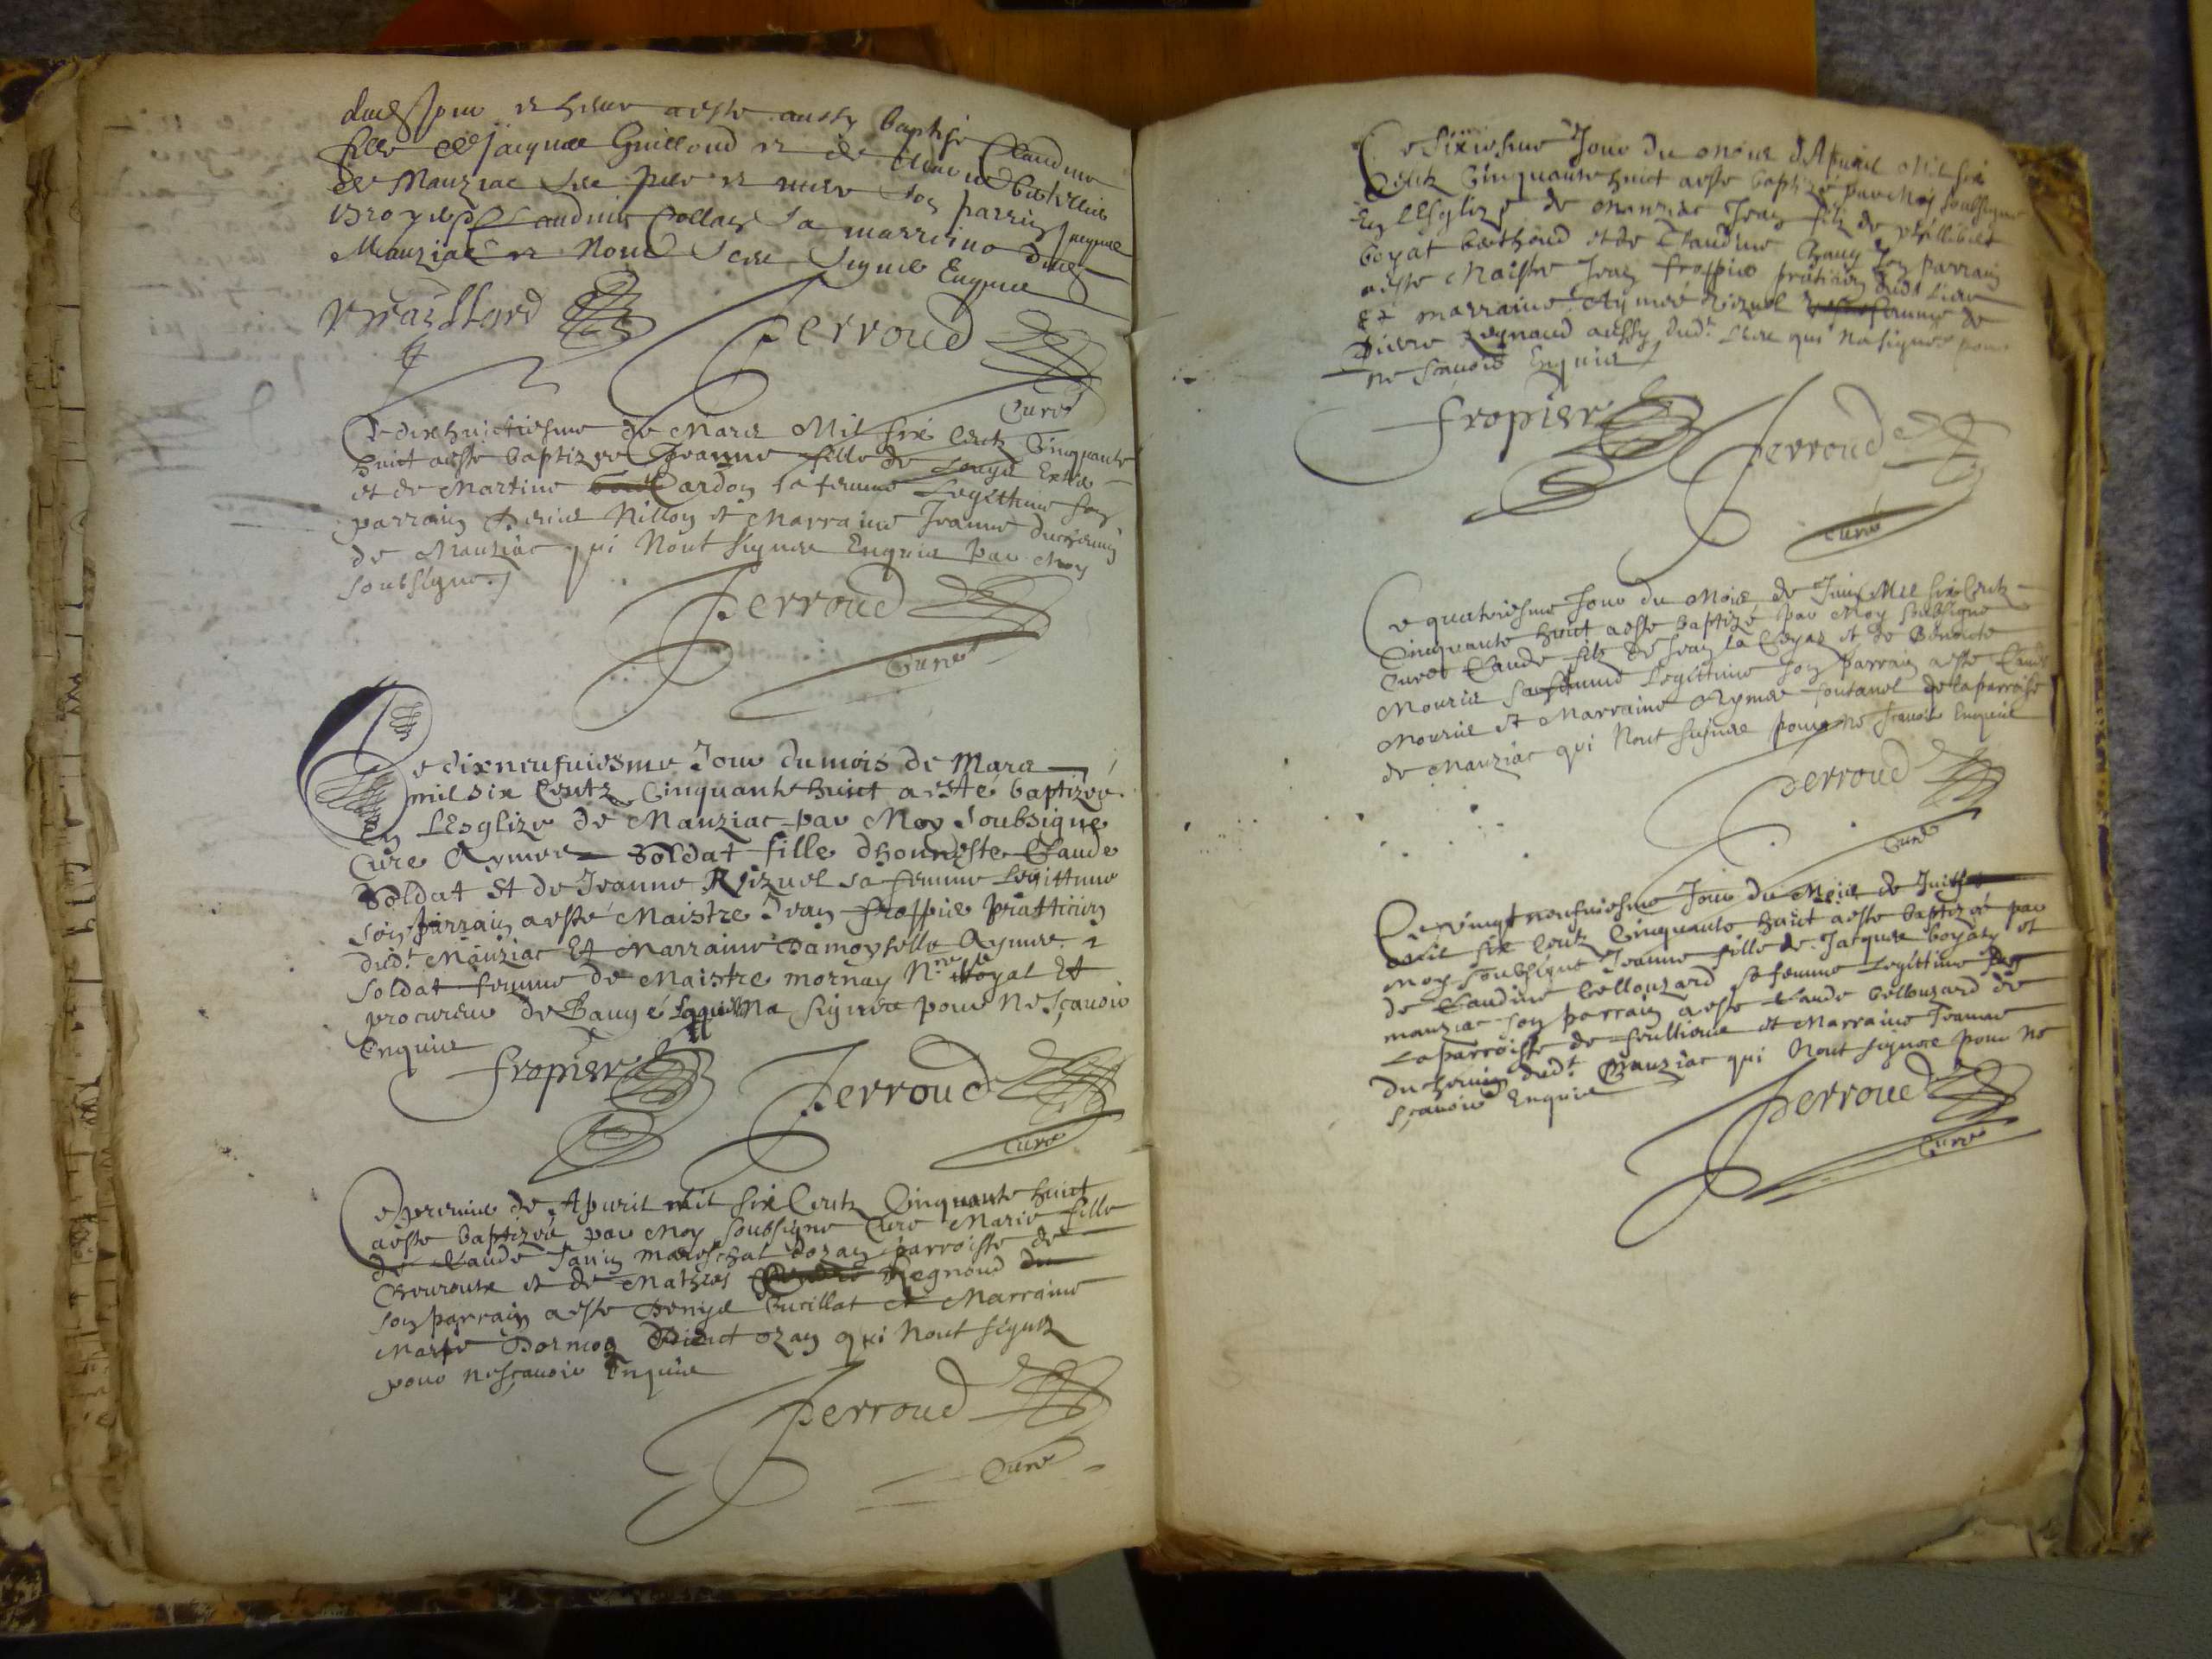 aeste aussy baptisé Claudine
fille de Jacques Guilloud et de
de Manziac ses pere et mere son parrin Jacques
Claudine Collas sa marrine
Manziac et Nont sceu signer Enquis
Perroud
Curé
Ce dixhuictiesme de Mars Mil six Centz Cinquante
huict aesté baptizée Jeanne fille de Louys
et de Martine Cardon sa femme Legittime son
parrain Nillon et Marraine Jeanne duchemin
de Manziac qui Nont signés Enquis par Moy
soubsigné.
Perroud
Curé
Ce dixneufuiesme Jour du mois de Mars
mil six Centz Cinquante huict a esté baptizée
En Lesglize de Manziac par Moy Soubsigné
Curé Aymée Soldat fille dhonneste Claude
Soldat Et de Jeanne Rizuel sa femme Legittime
son parrain aesté Maistre Jean froppier pratticien
dudt Manziac Et Marraine Damoyselle Aymée
Soldat femme de Maistre mornay Nre Royal Et
procureur de Baugé Na signée pour Ne sçauoir
Enquise
fropier
Perroud
Curé
Ce premier de Apuril mil six Centz Cinquante huict
aesté baptizée par Moy soubsigné Curé Marie fille
de Claude Janin mareschal dozan parroisse de
Cheuroux et de Mathie Regnoud
son parrain aesté Denys Curillat et Marraine
ozan qui Nont signés
pour ne sçauoir Enquis
Perroud
Curé
Ce sixiesme Jour du Mois dApuril Mil six
Centz Cinquante huict aesté baptizé par Moy soubsigné
En LEsglize de Manziac Jean filz de Philibert
boyat berthoud et de Claudine Chanu son parrain
aesté Maistre Jean froppier praticien dudt Lieu
Et marraine Aymée Rizuel femme de
Pierre Regnaud aussy dudt Lieu qui Na signé pour
ne sçauoir Enquis
fropier
Perroud
Curé
Ce quatriesme Jour du Mois de Juin Mil six Centz
Cinquante huict aesté baptizé par Moy soubsigné
Curé Claude filz de Jean la Coyaz et de Benoite
Mourie sa femme Legittime son parrain aesté Claude
Mourie et Marraine Aymée fontanel de la parroisse
de Manziac qui Nont signés pour ne sçauoir Enquis
Perroud
Curé
Ce vingt neufuiesme Jour du Mois de Juillet
Mil six Centz Cinquante huict aesté baptizée par
Moy soubsigné Jeanne fille de Jacques boyat et
de Claudine bellouzard sa femme Legittime
manziac son parrain aesté Claude bellouzard de
La parroisse de feulliens et Marraine Jeanne
duchemin dudt Manziac qui Nont signés pour Ne
sçauoir Enquis
Perroud
Curé